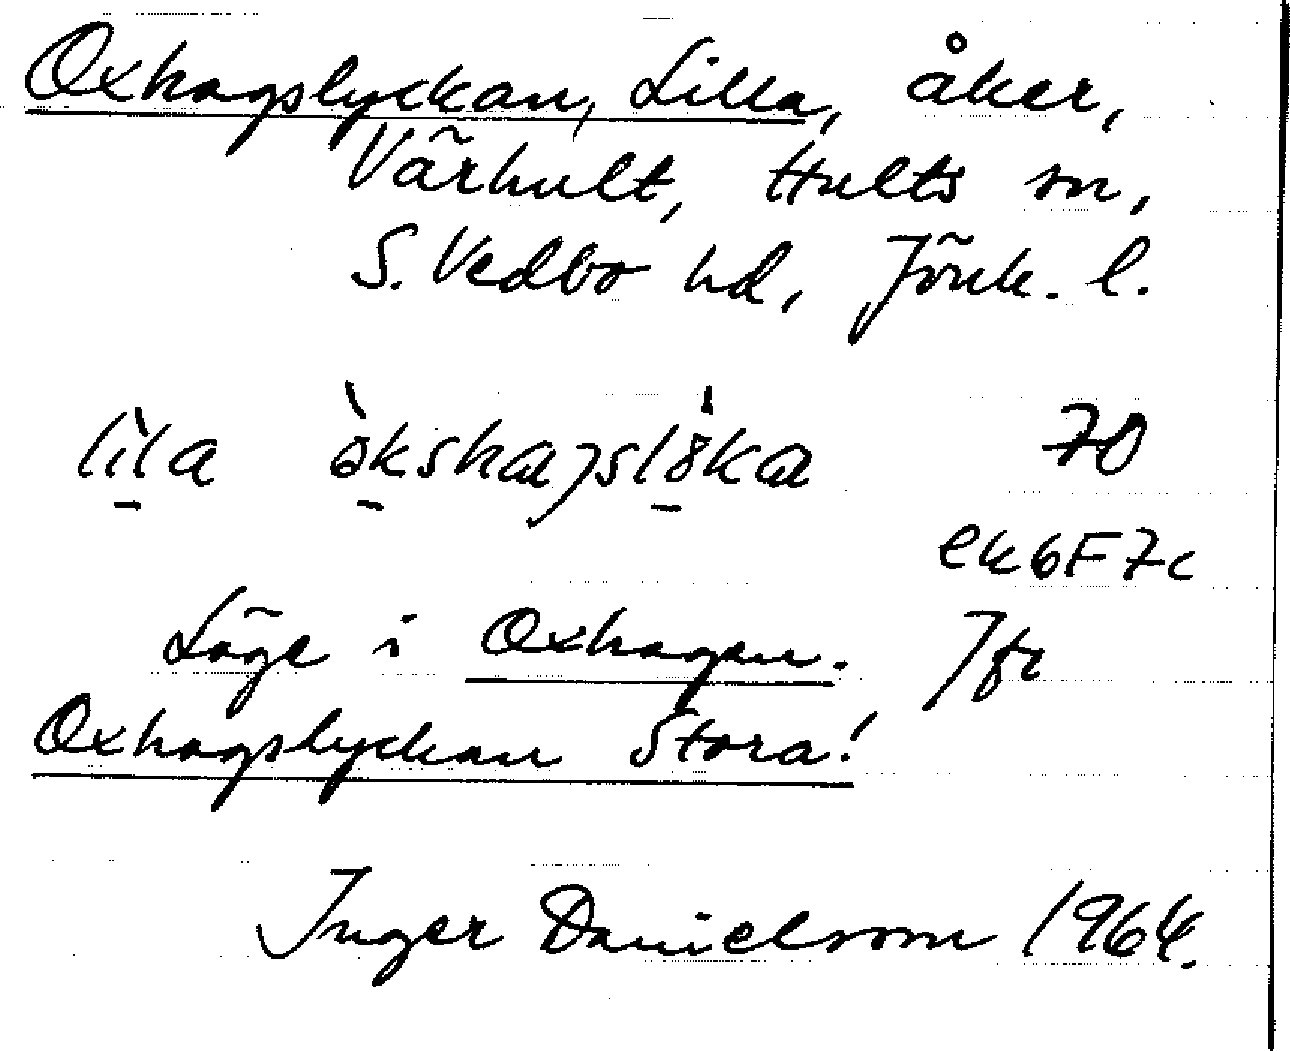 Oxhagslyckan, Lilla, åker,
Vãrhult, Hults sn,
S. Vedbo hd, Jönk. l.
70
ek6F7c
Läge i Oxhagen. Jfr
Oxhagslyckan Stora!
Inger Danielsson 1964.